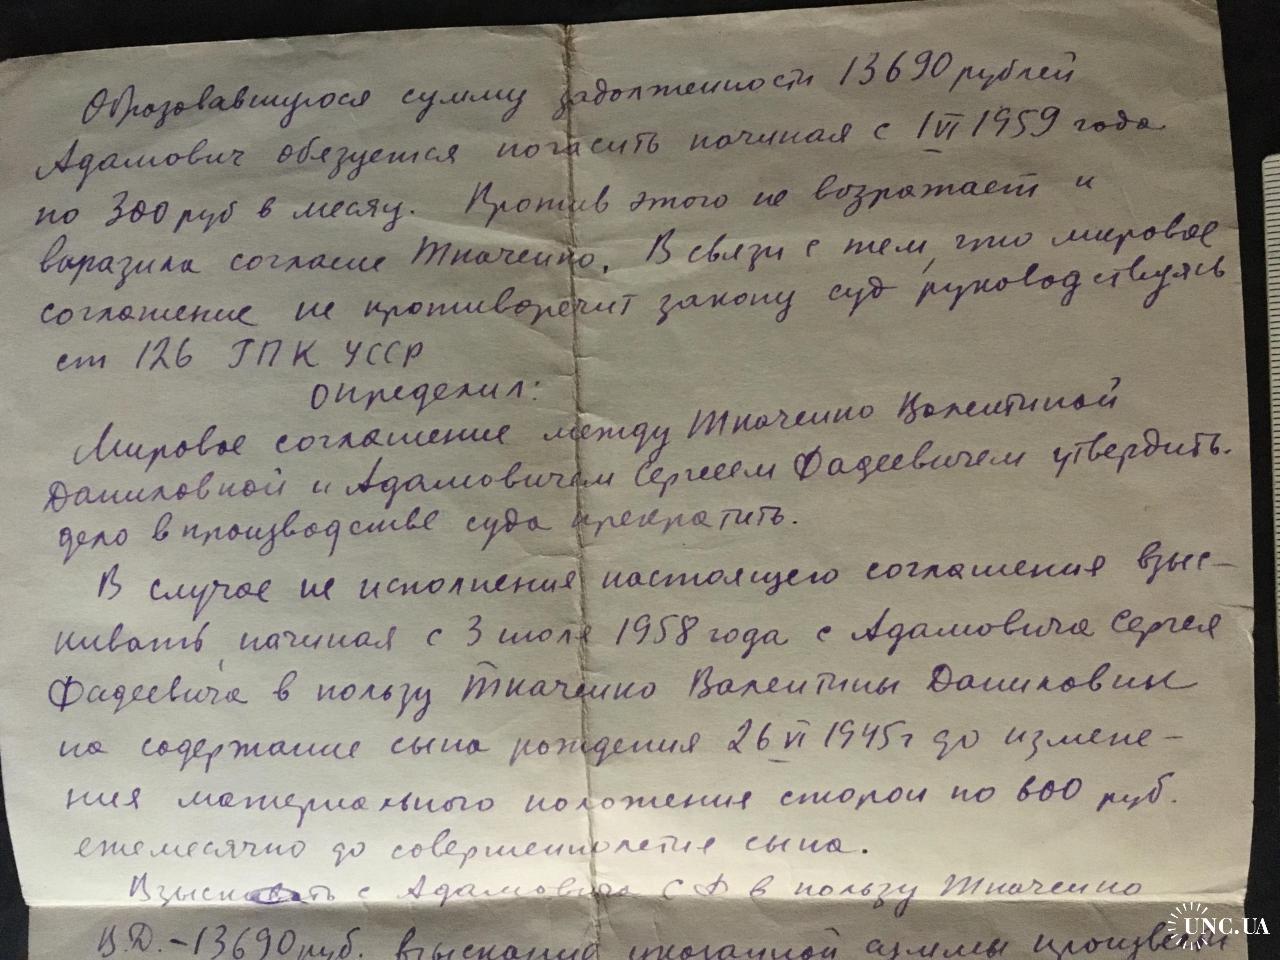 Образовавшуюся сумму задолженности 13690 рублей
Адамович обязуется погасить начиная с 1 VI 1959 года
по 300 руб в месяц. Против этого не возражает и
выразила согласие Ткаченко. В связи с тем, что мировое
соглашение не противоречит закону суд руководствуясь
ст 126 ГПК УССР
определил:
Мировое соглашение между Ткаченко Валентиной
Даниловной и Адамовичем Сергеем Фадеевичем утвердить.
дело в производстве суда прекратить.
В случае не исполнения настоящего соглашения взыс-
кивать, начиная с 3 июля 1958 года с Адамовича Сергея
Фадеевича в пользу Ткаченко Валентины Даниловны
на содержание сына рождения 26 VI 1945 г до измене-
ния материального положения сторон по 600 руб.
ежемесячно до совершеннолетия сына.
Взыскать с Адамовича С Ф в пользу Ткаченко
В.Д. - 13690 руб. взыскание указанной суммы произвести
UNC.UA